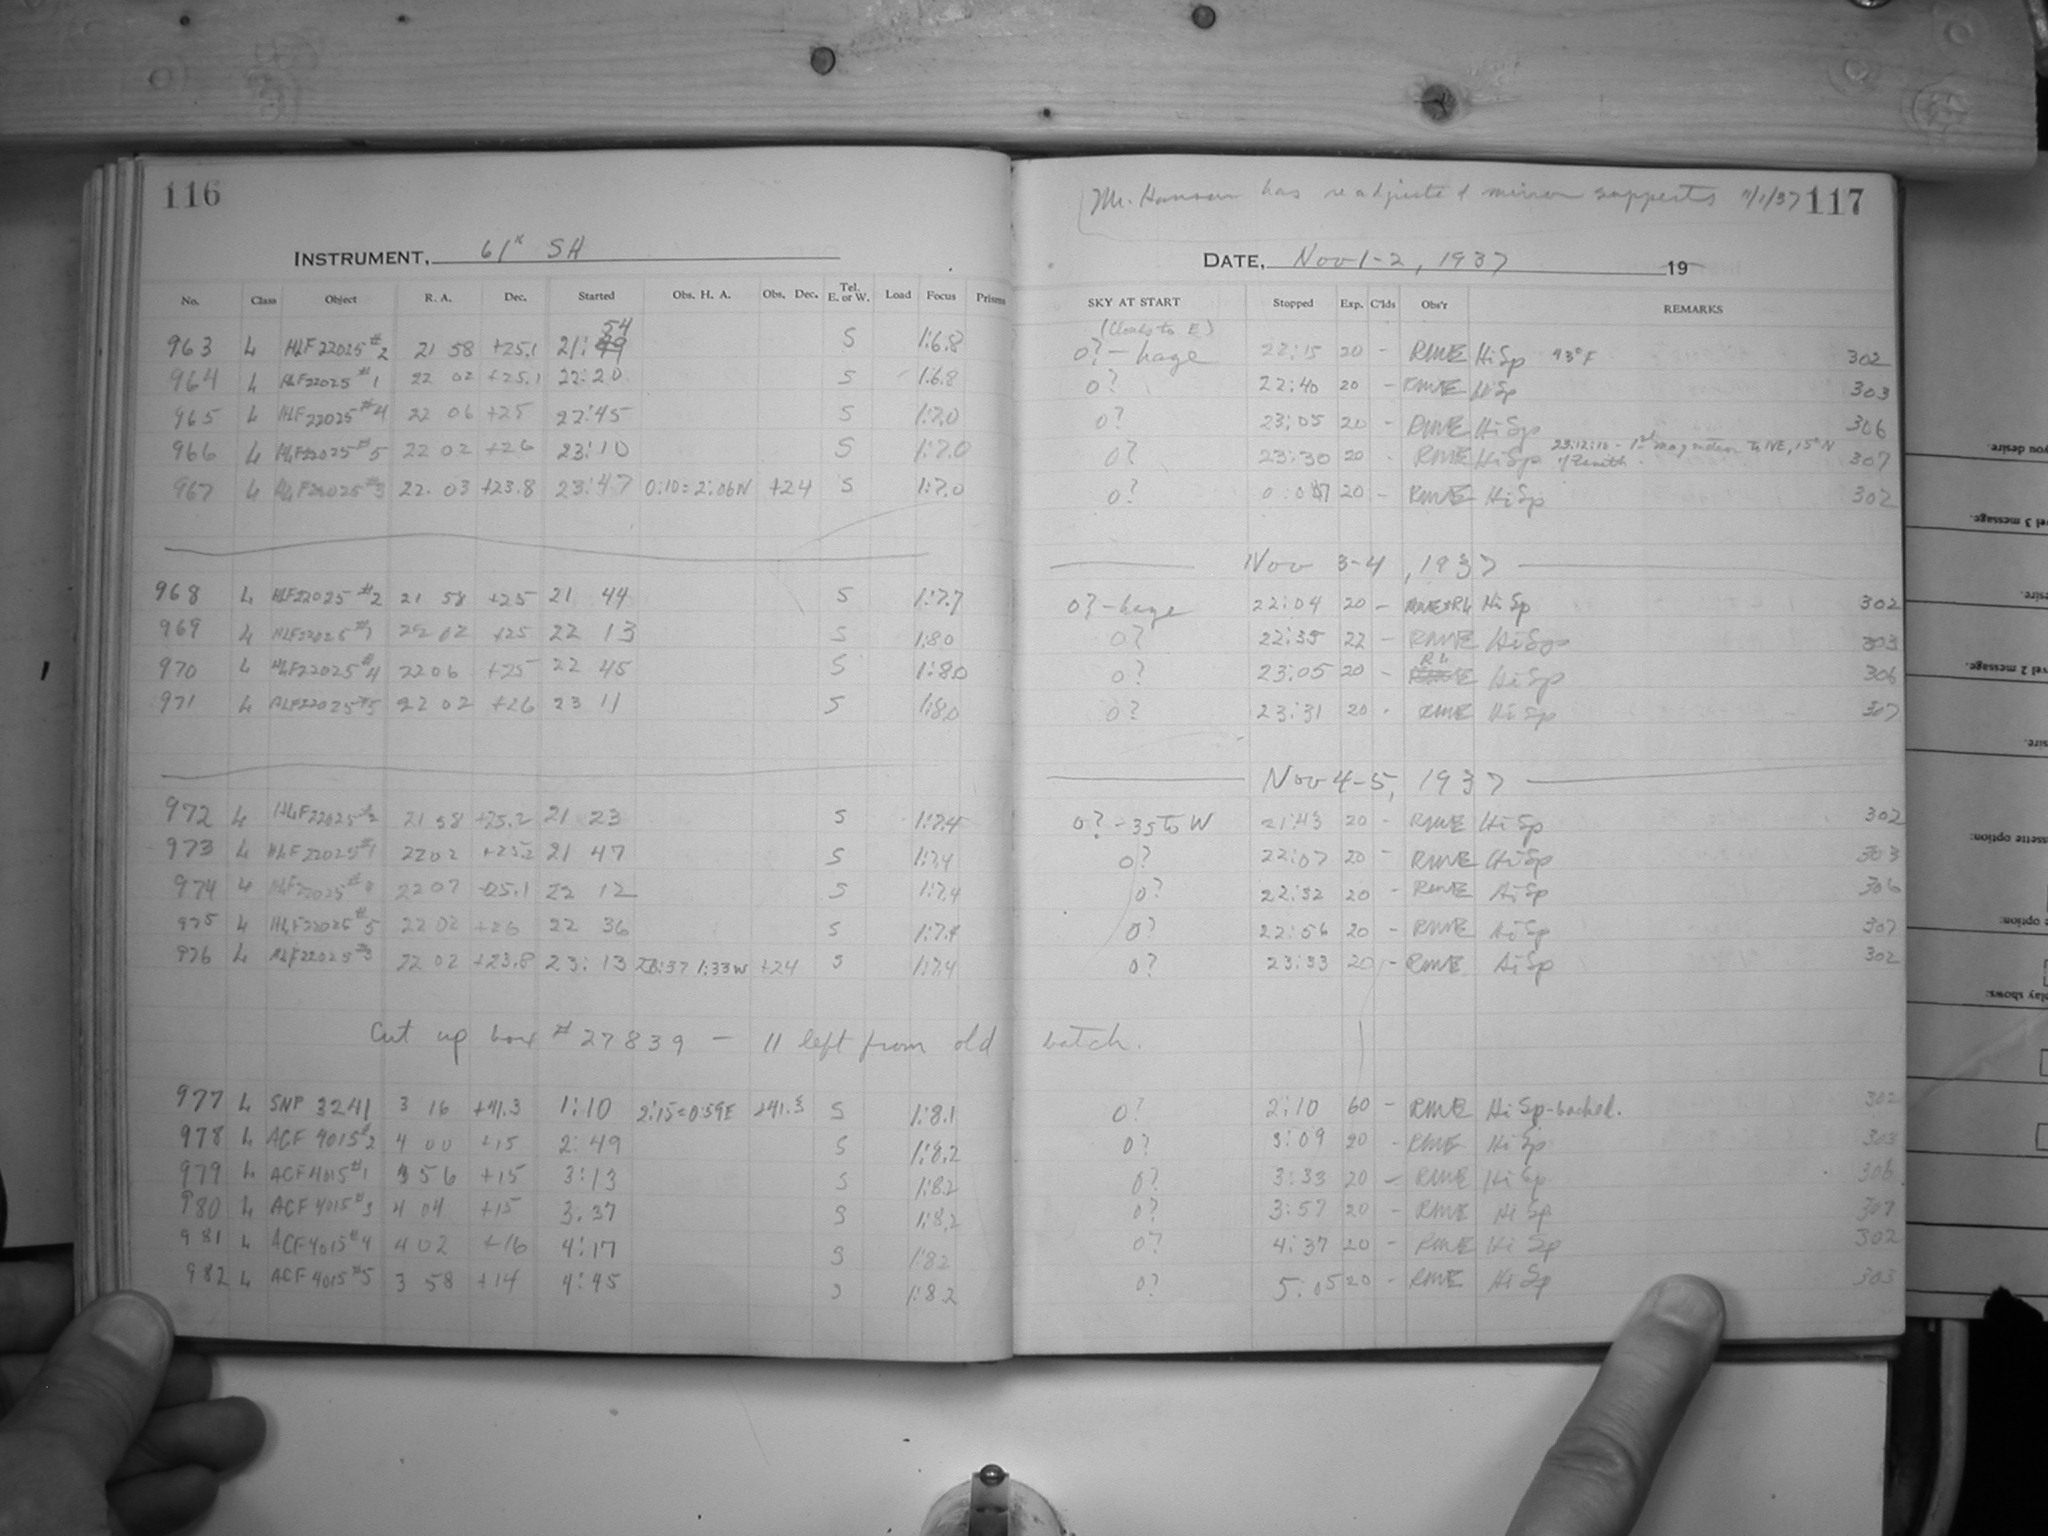 116
INSTRUMENT, 61" SH
No. Class Object R. A. Dec. Started Obs. H. A. Obs. Dec. Tel. E. or W. Load Focus Prisms
963 L HLF 22025 #2 21 58 +25.1 21:54 S 1:6.8
964 L HLF 22025 #1 22 02 +25.1 22:20 S 1:6.8
965 L HLF 22025 #4 22 06 +25 22:45 S 1:7.0
966 L HLF 22025 #5 22 02 +26 23:10 S 1:7.0
967 L HLF 22025 #3 22.03 +23.8 23:47 0:10=2:06W +24 S 1:7.0
968 L HLF 22025 #2 21 58 +25 21 44 S 1:7.7
969 L HLF 22025 #1 22 02 +25 22 13 S 1:80
970 L HLF 22025 #4 22 06 +25 22 45 S 1:8.0
971 L HLF 22025 #5 22 02 +26 23 11 S 1:8.0
972 L HLF 22025 #2 21 58 +25.2 21 23 S 1:7.4
973 L HLF 22025 #1 22 02 +25.2 21 47 S 1:7.4
974 L HLF 22025 #4 22 07 +25.1 22 12 S 1:7.4
975 L HLF 22025 #5 22 02 +26 22 36 S 1:7.4
976 L HLF 22025 #3 22 02 +23.8 23:13 23:37 1:33W +24 S 1:7.4
Cut up box #27839 — 11 left from old batch.
977 L SNP 3241 3 16 +41.3 1:10 2:15=0:59E +41.3 S 1:8.1
978 L ACF 4015 #2 4 00 +15 2:49 S 1:8.2
979 L ACF 4015 #1 3 56 +15 3:13 S 1:8.2
980 L ACF 4015 #3 4 04 +15 3.37 S 1:8.2
981 L ACF 4015 #4 4 02 +16 4:17 S 1:82
982 L ACF 4015 #5 3 58 +14 4:45 S 1:8.2
Mr. Hanson has readjusted mirror supports 11/1/37 117
DATE, Nov 1-2, 1937 19
SKY AT START Stopped Exp. C'lds Obs'r REMARKS
(Clouds to E)
0? - haze 22:15 20 - RMWE HiSp 43°F 302
0? 22:40 20 - RMWE HiSp 303
0? 23:05 20 - RMWE HiSp 306
0? 23:30 20 - RMWE HiSp 23:12:10 - 1st mag meteor to NE, 15° N
of Zenith. 307
0? 0:07 20 - RMWE HiSp 302
Nov 3-4, 1937
0? - haze 22:04 20 - HiSp 302
0? 22:35 22 - RMWE HiSp 303
0? 23:05 20 - RL HiSp 306
0? 23:31 20 - RMWE HiSp 307
Nov 4-5, 1937
0? - 35 to W 21:43 20 - RMWE HiSp 302
0? 22:07 20 - RMWE HiSp 303
0? 22:32 20 - RMWE HiSp 306
0? 22:56 20 - RMWE HiSp 307
0? 23:33 20 - RMWE HiSp 302
0? 2:10 60 - RMWE HiSp-backed. 302
0? 3:09 20 - RMWE HiSp 303
0? 3:33 20 - RMWE HiSp 306
0? 3:57 20 - RMWE HiSp 307
0? 4:37 20 - RMWE HiSp 302
0? 5:05 20 - RMWE HiSp 303
you desire.
vel 3 message.
sire.
vel 2 message.
sire.
ssette option:
e option:
play shows: